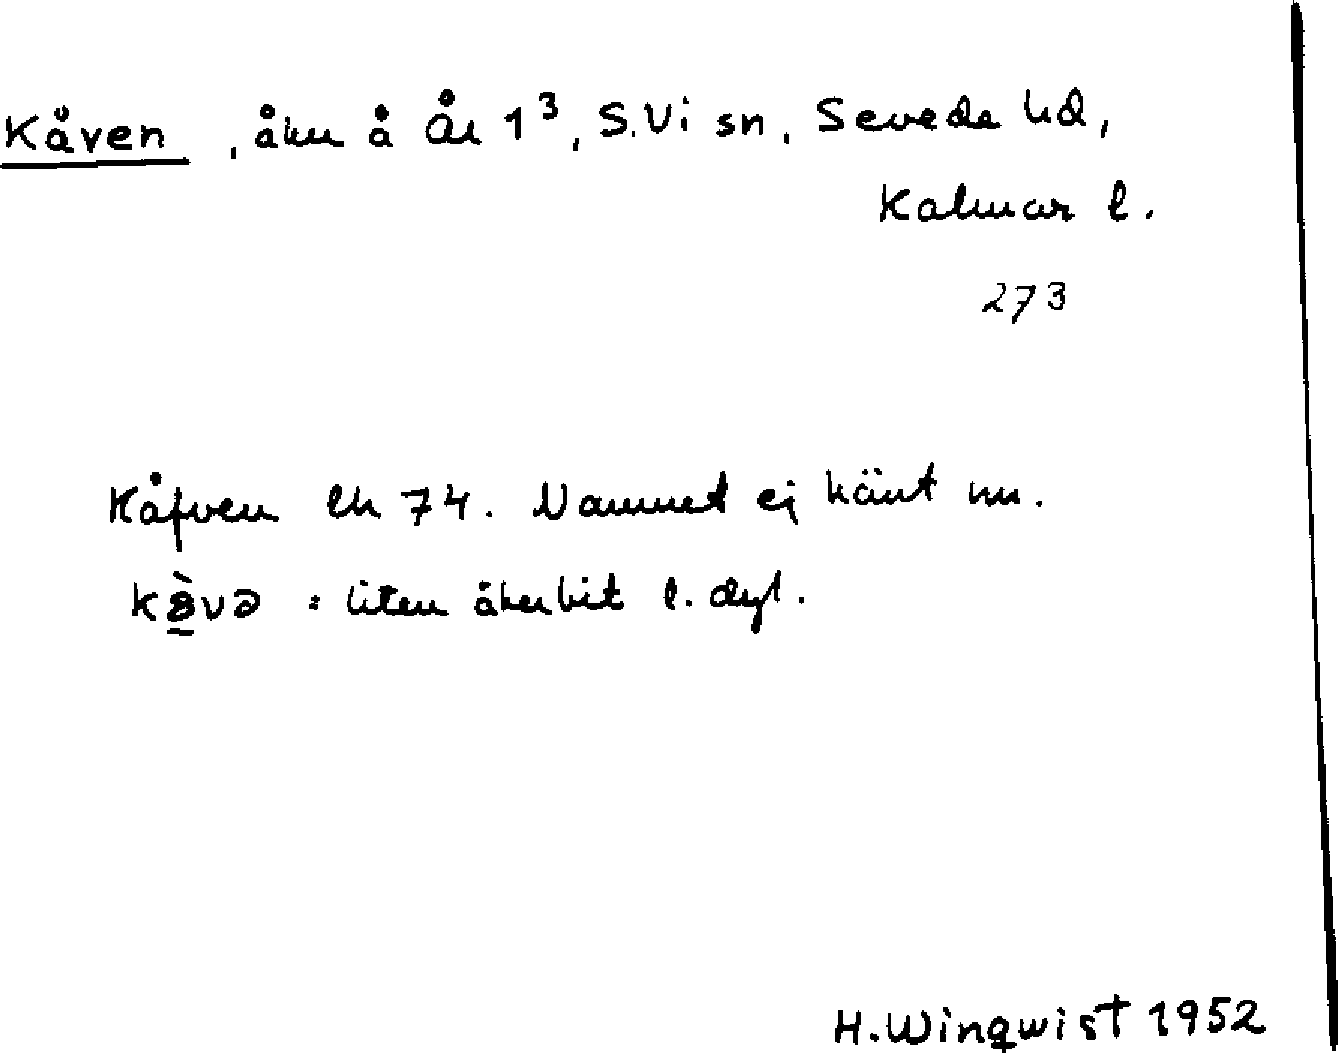 Kåven, åker å År 1³, S.Vi sn, Sevede hd,
Kalmar l.
273
Kåfven lh 74. Namnet ej känt nu.
: liten åkerbit l. dyl.
H.Winqwist 1952